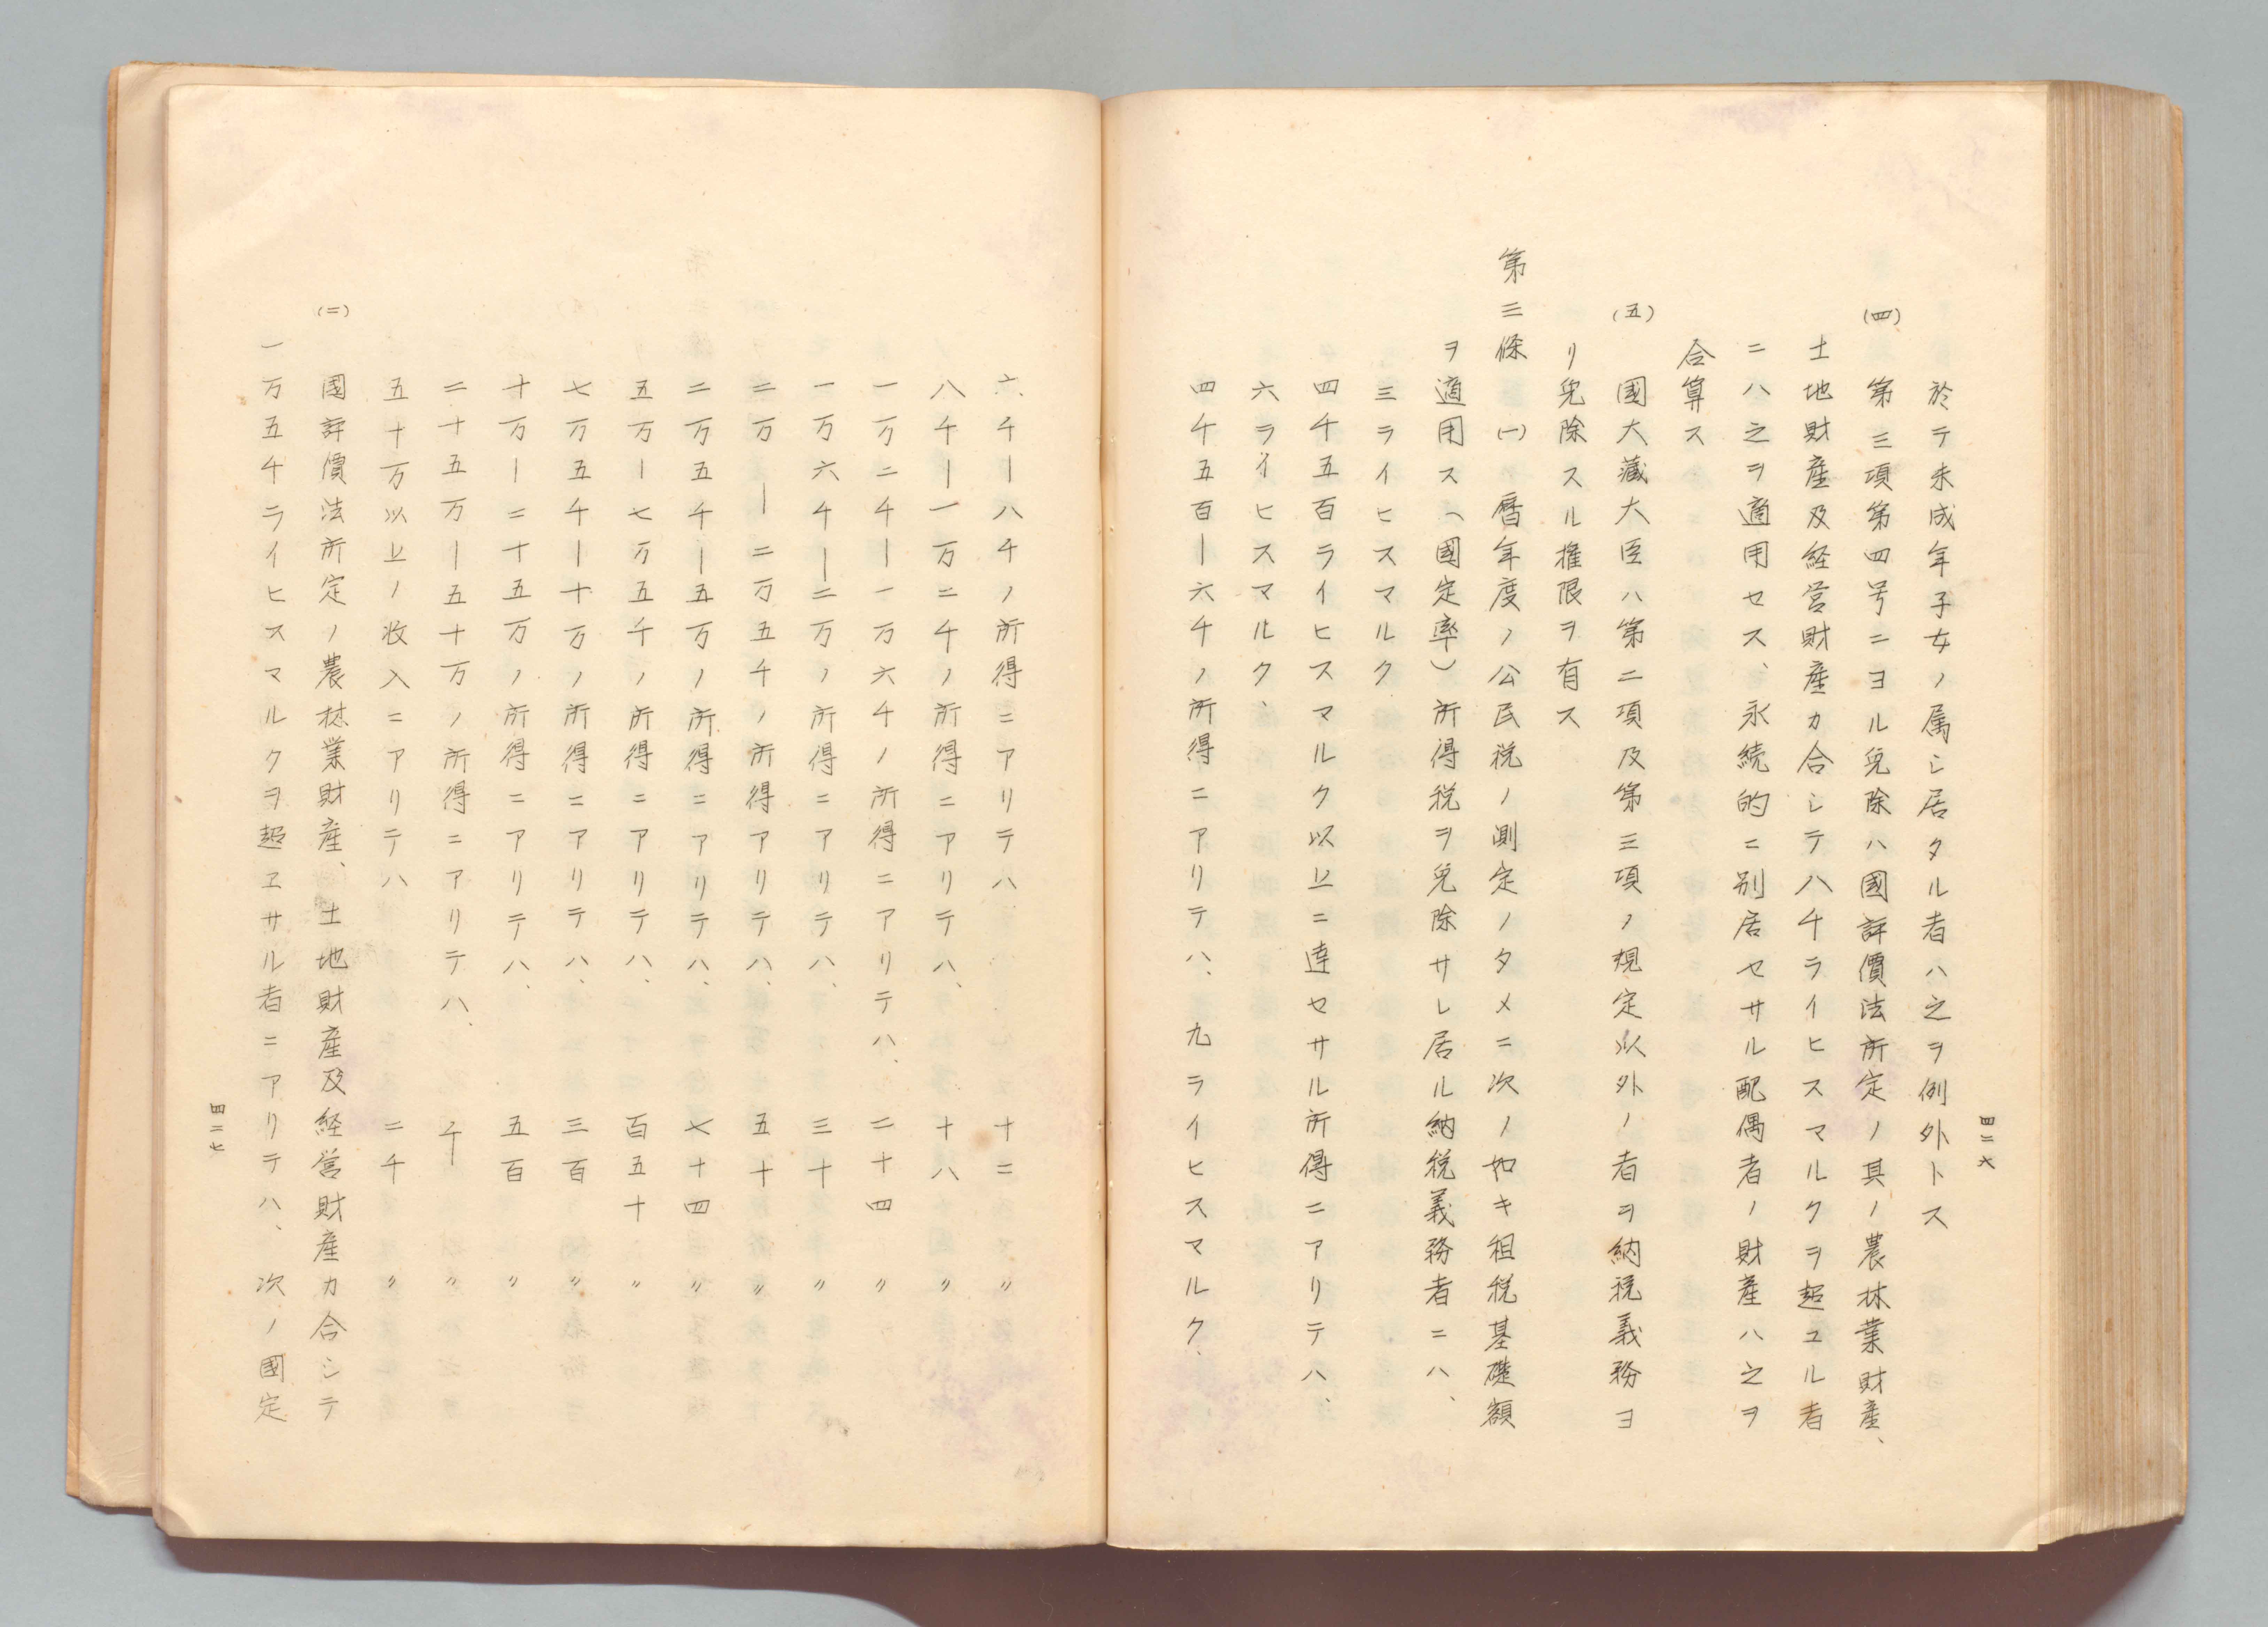 四二六
於テ未成年子女ノ属シ居タル者ハ之ヲ例外トス
(四) 第三項第四号ニヨル免除ハ國評價法所定ノ其ノ農林業財産、
土地財産及経営財産カ合シテ八千ライヒスマルクヲ超ユル者
ニハ之ヲ適用セス、永続的ニ別居セサル配偶者ノ財産ハ之ヲ
合算ス
(五) 國大藏大臣ハ第二項及第三項ノ規定以外ノ者ヲ納税義務ヨ
リ免除スル権限ヲ有ス
第三條 (一) 暦年度ノ公民税ノ測定ノタメニ次ノ如キ租税基礎額
ヲ適用ス(國定率)所得税ヲ免除サレ居ル納税義務者ニハ、
三ライヒスマルク
四千五百ライヒスマルク以上ニ達セサル所得ニアリテハ、
六ライヒスマルク、
四千五百―六千ノ所得ニアリテハ、九ライヒスマルク、
六千―八千ノ所得ニアリテハ 十二 〃
八千―一万二千ノ所得ニアリテハ、 十八 〃
一万二千―一万六千ノ所得ニアリテハ、 二十四 〃
一万六千―二万ノ所得ニアリテハ、 三十 〃
二万―二万五千ノ所得アリテハ、 五十 〃
二万五千―五万ノ所得ニアリテハ、 七十四 〃
五万―七万五千ノ所得ニアリテハ、 百五十 〃
七万五千―十万ノ所得ニアリテハ、 三百 〃
十万―二十五万ノ所得ニアリテハ、 五百 〃
二十五万―五十万ノ所得ニアリテハ、 千― 〃
五十万以上ノ收入ニアリテハ 二千 〃
(二) 國評價法所定ノ農林業財産、土地財産及経営財産カ合シテ
一万五千ライヒスマルクヲ超ヱサル者ニアリテハ、次ノ國定
四二七